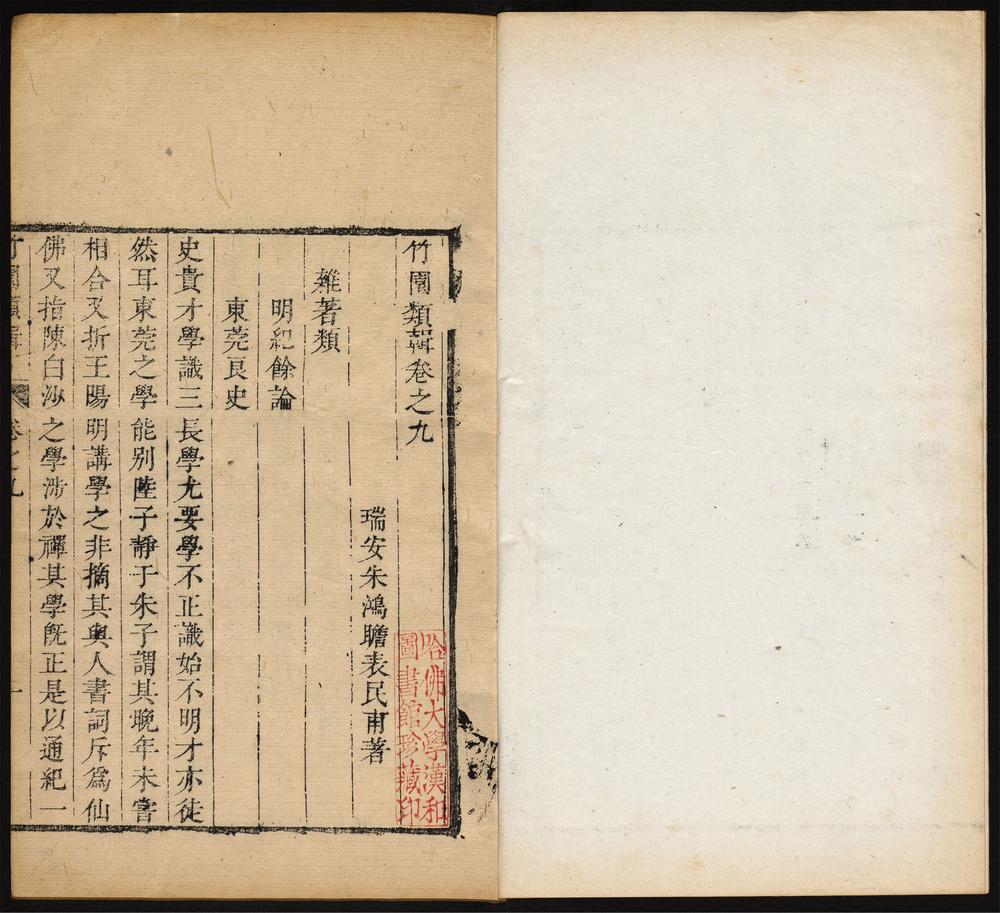 竹園類輯卷之九
瑞安朱鴻瞻表民甫著
雜著類
明紀餘論
東莞良史
史貴才學識三長學尤要學不正識始不明才亦徒
然耳東莞之學能別陸子靜于朱子謂其晚年未嘗
相合又折王陽明講學之非摘其與人書詞斥為仙
佛又指陳白沙之學涉於禪其學旣正是以通紀一
竹園類輯 卷之九 一
哈佛大學漢和
圖書館珍藏印